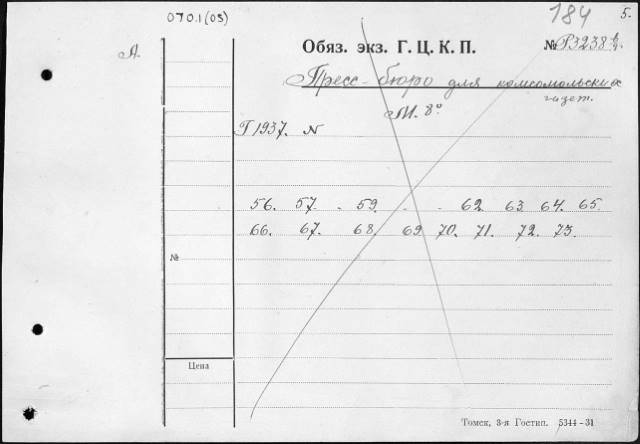 070.1(05)
184
5.
А.
Обяз. экз. Г. Ц. К. П.
№ Р3238
Пресс-бюро для комсомольских
газет.
М. 8°
Г 1937. N
56. 57. - 59. - - 62. 63. 64. 65.
66. 67. 68. 69 70. 71. 72. 73.
№
Цена
Томск, 3-я Гостип. 5344-31